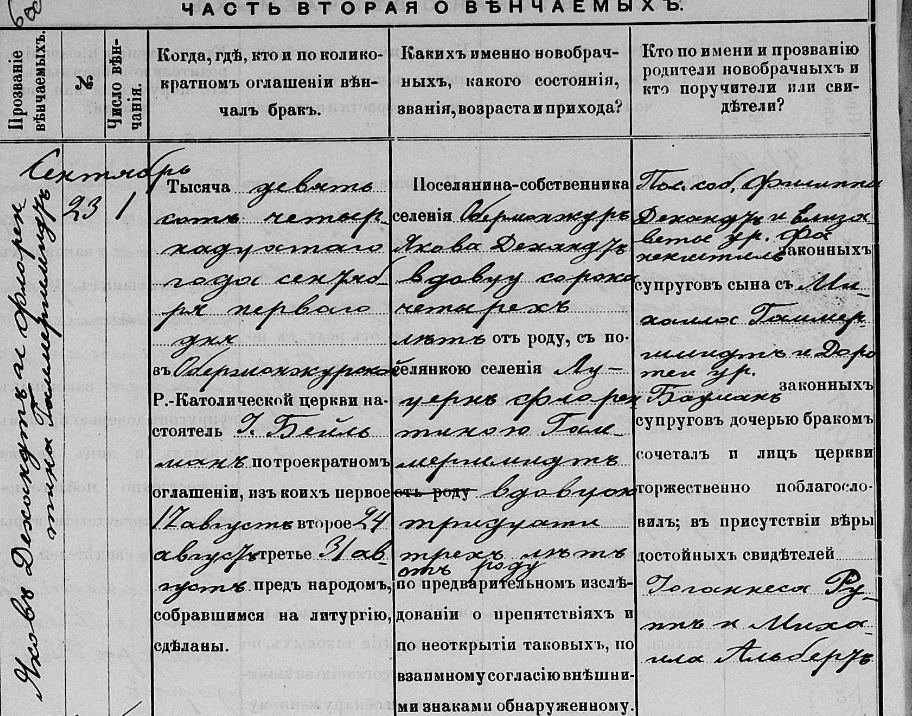 ЧАСТЬ ВТОРАЯ О ВѢНЧАЕМЫХЪ.
Прозваніе
вѣнчаемыхъ.
№
Число вѣн-
чанія.
Когда, гдѣ, кто и по колико-
кратномъ оглашеніи вѣн-
чалъ бракъ.
Какихъ именно новобрач-
ныхъ, какого состоянія,
званія, возраста и прихода?
Кто по имени и прозванію
родители новобрачныхъ и
кто поручители или сви-
дѣтели?
Сентябрь
Яковъ Декандтъ и Флорен
тина Гаммершмидтъ
23
1
Тысяча девять
сотъ четыр
надцатаго
года сентяб-
ря перваго
дня
въ Обермонжурской
Р.-Католической церкви на-
стоятель І. Бейль
манъ по троекратномъ
оглашеніи, изъ коихъ первое
17 августъ второе 24
августъ третье 31 ав-
густъ предъ народомъ,
собравшимся на литургію,
сдѣланы.
Поселянина-собственника
селенія Обермонжуръ
Якова Декандтъ
вдовцу сорока
четырехъ
лѣтъ отъ роду, съ по-
селянкою селенія Лу-
цернъ Флорен
тиною Гам-
мершмидтъ
отъ роду вдовою
тридцати
трехъ лѣтъ
отъ роду
по предварительномъ изслѣ-
дованіи о препятствіяхъ и
по неоткрытіи таковыхъ, по
взаимному согласію внѣшни-
ми знаками обнаруженному.
Пос. соб. Филиппа
Декандтъ и Елиза
веты ур. Фа
законныхъ
супруговъ сына съ Ми-
хаила Гаммер
шмидтъ и Доро
теи ур.
Бауманъ законныхъ
супруговъ дочерью бракомъ
сочеталъ и лицъ церкви
торжественно поблагосло-
вилъ; въ присутствіи вѣры
достойныхъ свидѣтелей
Іоганнеса Ру-
ппъ и Миха-
ила Альбертъ